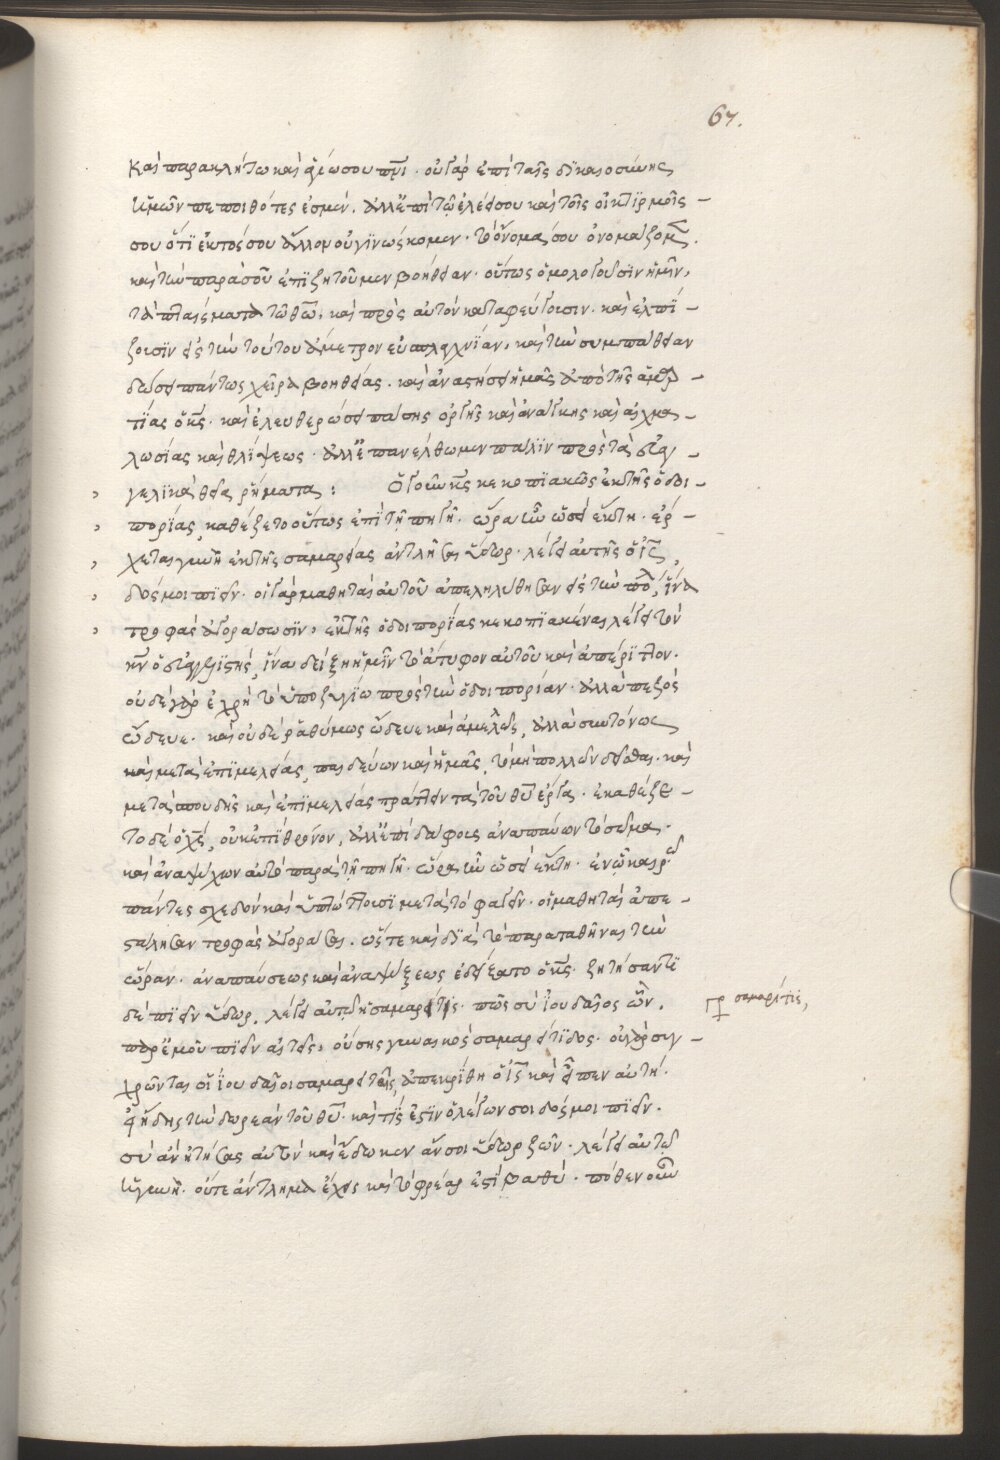 67.
καὶ παρακλήτω καὶ ἁγίω σου πνι. οὐ γὰρ ἐπὶ ταῖς δικαιοσύνης
ἡμῶν πεποιθότες ἐσμέν. ἀλλ' ἐπὶ τῷ ἐλέει σου καὶ τοῖς οἰκτιρμοῖς
σου ὅτι ἐκτός σου ἄλλον οὐ γινώσκομεν. τὸ ὄνομά σου ὀνομάζομεν.
καὶ τὴν παρὰ σοῦ ἐπιζητοῦμεν βοήθειαν. οὕτως ὁμολογοῦσιν ἡμῖν,
τὰ πλάσματα τοῦ θῦ. καὶ πρὸς αὐτὸν καταφεύγουσιν. καὶ ἐλπί-
ζουσιν εἰς τὴν τούτου ἄμετρον εὐσπλαχνίαν, καὶ τὴν συμπάθειαν
δώσει πάντως χεῖρα βοηθείας. καὶ ἀναστήσει ἡμᾶς ἀπὸ τῆς ἁμαρ-
τίας ὁ κς. καὶ ἐλευθερώσει πάσης ὀργῆς καὶ ἀνάγκης καὶ αἰχμα-
λωσίας καὶ θλίψεως. ἀλλ' ἐπανέλθωμεν πάλιν πρὸς τὰ εὐαγ-
γελικὰ θεῖα ρήματα: Ὁ γοῦν κς κεκοπιακὼς ἐκ τῆς ὁδοι-
πορίας, καθέζετο οὕτως ἐπὶ τῇ πηγῇ. ὥρα ἦν ὡσεὶ ἕκτη. ἔρ-
χεται γυνὴ ἐκ τῆς σαμαρείας ἀντλῆσαι ὕδωρ. λέγει αὐτῆς ὁ ις,
δός μοι πιεῖν. οἱ γὰρ μαθηταὶ αὐτοῦ ἀπεληλύθησαν εἰς τὴν πόλ, ἵνα
τροφὰς ἀγοράσωσιν, ἐκ τῆς ὁδοιπορίας κεκοπιακέναι λέγει τὸν
κν ὁ εὐαγγελιστής, ἵνα δείξη ἡμῖν τὸ ἄτυφον αὐτοῦ καὶ ἀπέριττον.
οὐδὲ γὰρ ἐχρῆτο ὑποζυγίω πρὸς τὴν ὁδοιπορίαν. ἀλλὰ πεζὸς
ὥδευε. καὶ οὐδὲ ῥαθύμως ὥδευε καὶ ἀμελῶς, ἀλλὰ συντόνως
καὶ μετὰ ἐπιμελείας, παιδεύων καὶ ἡμᾶς, τὸ μὴ πολλῶν δεῖσθαι. καὶ
μετὰ σπουδῆς καὶ ἐπιμελείας πράττειν τὰ τοῦ θῦ ἔργα. ἐκαθέζε-
το δὲ ὁ χς, οὐκ ἐπὶ θρόνον, ἀλλ' ἐπὶ δάφους ἀναπαύων τὸ σῶμα.
καὶ ἀναψύχων αὐτὸ παρὰ τῇ πηγῇ. ὥρα ἦν ὡσεὶ ἕκτη. ἐν ᾧ καιρῶ
πάντες σχεδὸν καὶ ὑπνώττουσι μετὰ τὸ φαγεῖν. οἱ μαθηταὶ ἀπε-
στάλησαν τροφὰς ἀγοράσαι. ὥστε καὶ διὰ τὸ παραταθῆναι τὴν
ὥραν. ἀναπαύσεως καὶ ἀναψύξεως ἐδείξατο ὁ κς. ζητήσαντι
δὲ πιεῖν ὕδωρ. λέγει αὐτῷ ἡ σαμαρεῖτις. πῶς σὺ ἰουδαῖος ὢν,
παρ' ἐμοῦ πιεῖν αἰτεῖς, οὔσης γυναικὸς σαμαρείτιδος. οὐ γὰρ συγ-
χρῶνται οἱ ἰουδαῖοι σαμαρείταις, ἀπεκρίθη ὁ ις καὶ εἶπεν αὐτῇ.
εἰ ᾔδεις τὴν δωρεὰν τοῦ θῦ. καὶ τίς ἐστιν ὁ λέγων σοι δός μοι πιεῖν.
σὺ ἂν ᾔτησας αὐτὸν καὶ ἔδωκεν ἄν σοι ὕδωρ ζῶν. λέγει αὐτῷ
ἡ γυνή. οὔτε ἄντλημα ἔχεις καὶ τὸ φρέαρ ἐστὶ βαθύ. πόθεν οὖν
γρ σαμαρῖτις,